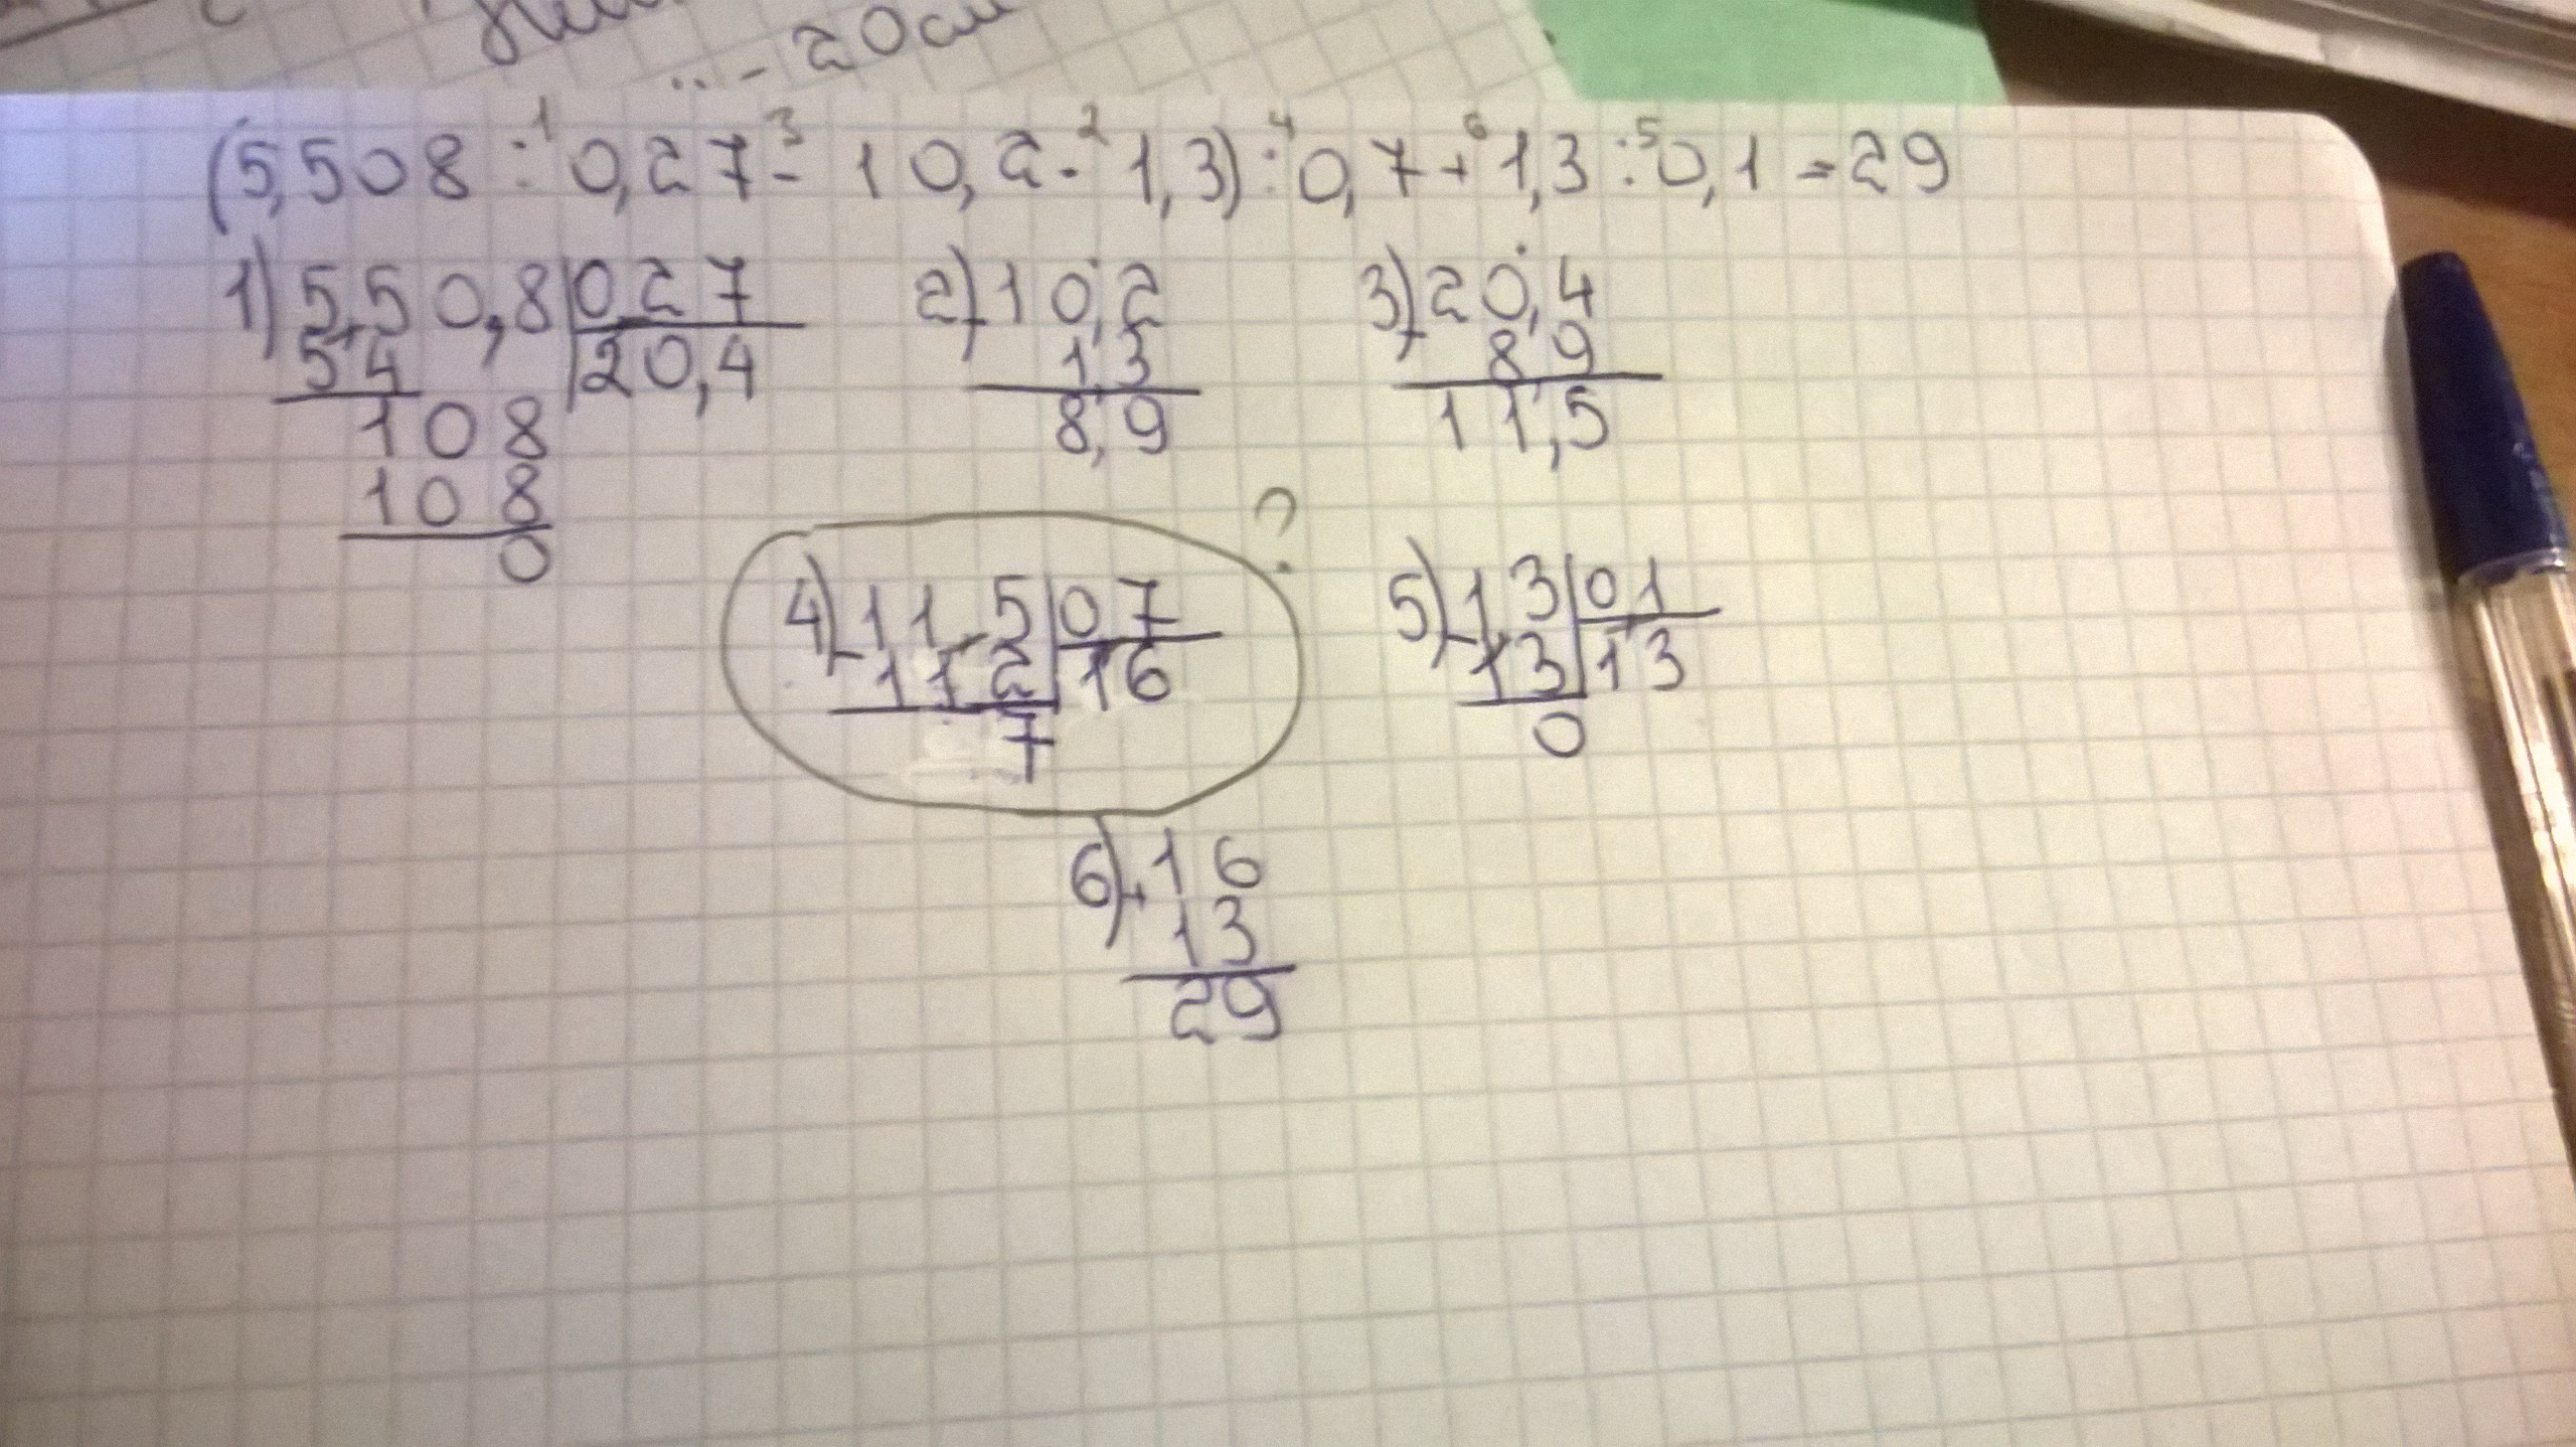 20см
(5,508 :¹ 0,27 -³ 10,2 ·² 1,3) :⁴ 0,7 +⁶ 1,3 :⁵ 0,1 = 29
1) 5,50,8 | 0,27 2) - 10,2 3) - 20,4
54 | 20,4 1,3 8,9
108 8,9 11,5
108
0
?
4) - 11,5 | 0,7 5) - 1,3 | 0,1
112 | 16 13 | 13
7 0
6) + 16
13
29